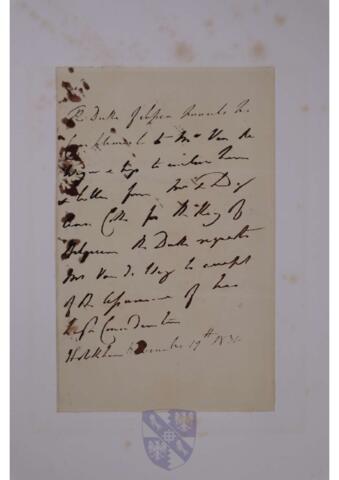 The Duke of Sussex presents his
Compliments to Mr Van de
Weyer & begs to enclose him
a letter from Mr
Coke for the King of
Belgium The Duke requests
Mr Van de Weyer to accept
of the assurance of his
high Consideration
Holkham November 19th